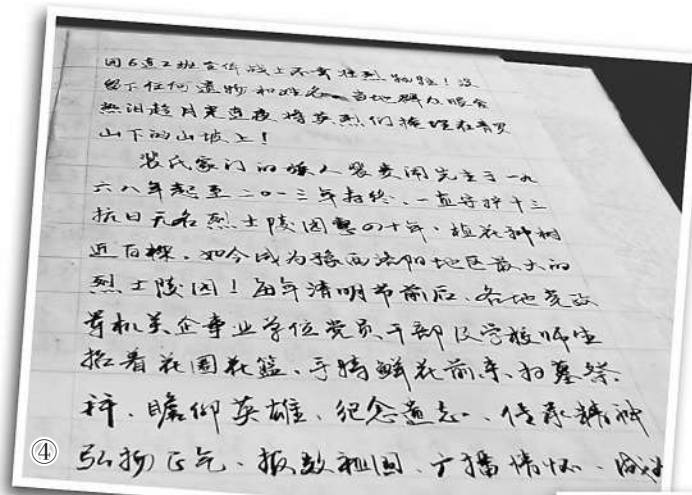 团5连2班全体战士不幸壮烈牺牲！没
留下任何遗物和姓名 当地群众眼含
热泪趁月黑连夜将英烈们掩埋在青
山下的山坡上！
裴氏家门的族人裴 闹先生于一九
六八年起至二〇一三年 终、一直守护十三
抗日无名烈士陵园 四十年、植花种树
近百棵、如今成为豫西洛阳地区最大的
烈士陵园！每年清明节前后、各地党政
军机关企事业单位党员干部及学校师生
抬着花圈花篮、手持鲜花前来、扫墓祭
拜、瞻仰英雄、纪念遗志、传承精神
弘扬正气、报效祖国、广播情怀、成
④